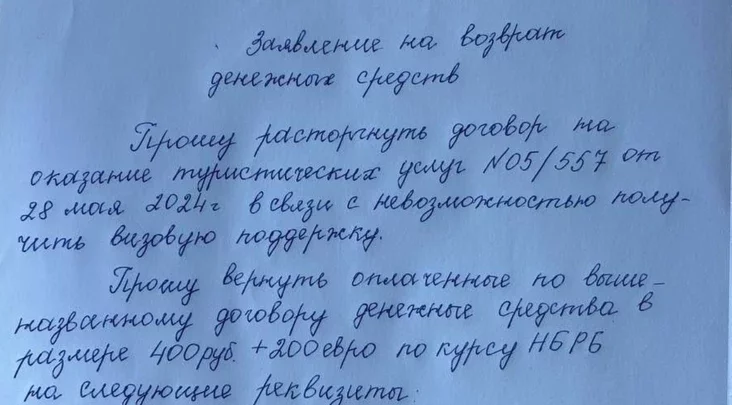 Заявление на возврат
денежных средств
Прошу расторгнуть договор на
оказание туристических услуг №05/557 от
28 мая 2024г в связи с невозможностью полу-
чить визовую поддержку.
Прошу вернуть оплаченные по выше-
названному договору денежные средства в
размере 400 руб. + 200 евро по курсу НБРБ
на следующие реквизиты: